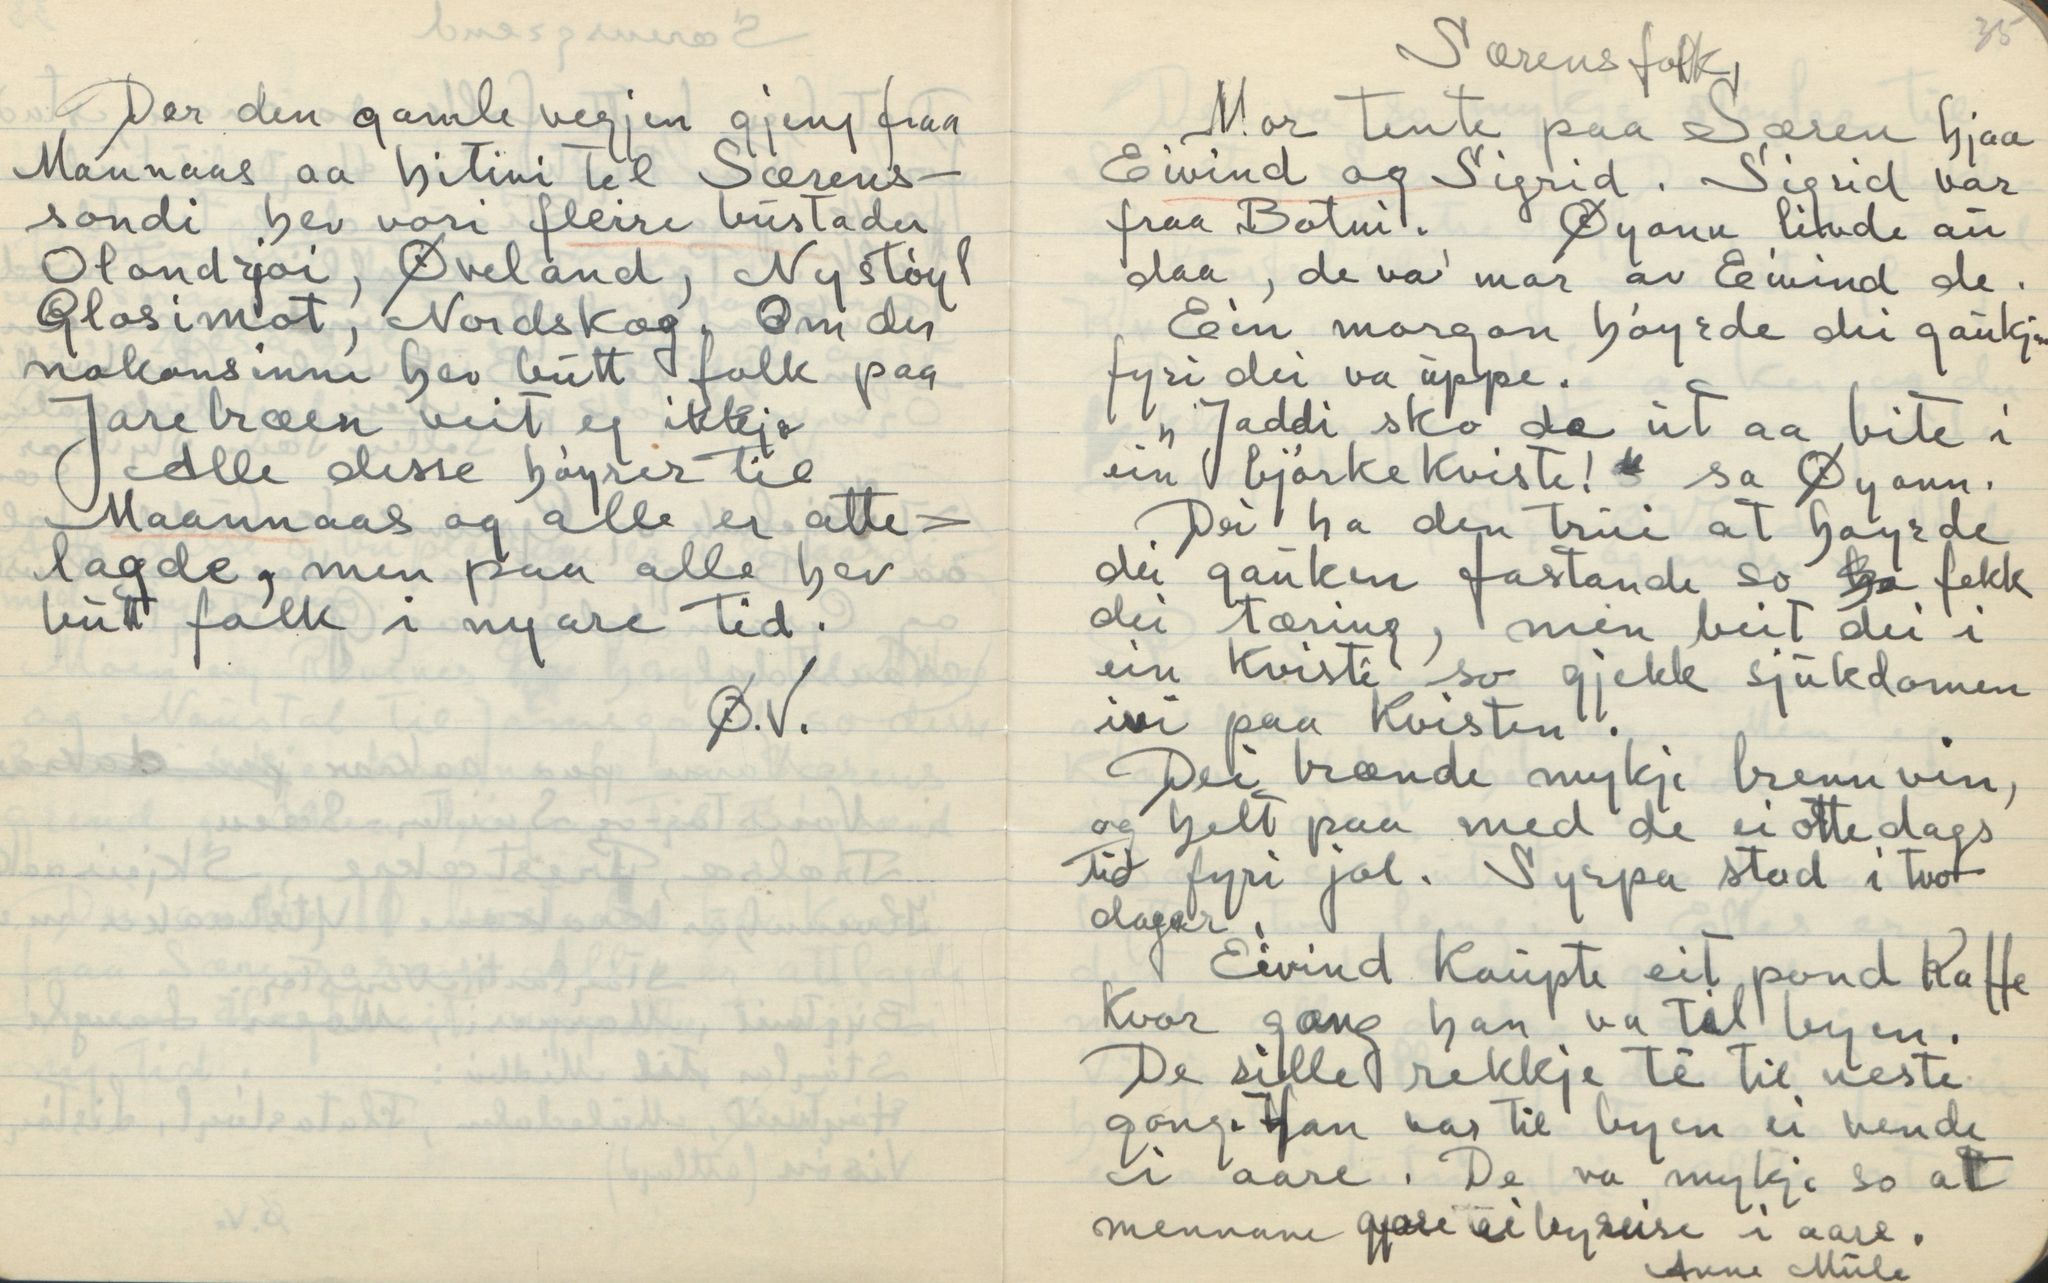 Der den gamle vegjen gjeng fraa
Mannaas aa hitini til Særens-
sondi hev vori fleire bustader
Olandrjoi, Øveland, Nystøyl
Glosimot, Nordskog. Om der
nokonsinne hev butt folk paa
Jarebræen veit eg ikkje
Alle desse høyrer til
Maannaas og alle er atte=
lagde, men paa alle hev
butt folk i nyare tid.
Ø.V.
35
Særensfolk,
Mor tente paa Særen hjaa
Eivind og Sigrid. Sigrid var
fraa Botni. Øyonn livde au
daa, de va' mor av Eivind de.
Ein morgon høyrde dei gaukjen
fyri dei va uppe.
"Jaddi sko de ut aa bite i
ein bjørkekviste!" sa Øyonn.
Dei ha den trui at høyrde
dei gauken fastande so fekk
dei tæring, men beit dei i
ein kviste so gjekk sjukdomen
ivi paa kvisten.
Dei brænde mykje brennvin,
og helt paa med de ei ottedags
tid fyri jol. Syrpa stod i tvo
dagar.
Eivind kaupte eit pond kaffe
kvor gong han va til byen.
De sille rekkje te til neste
gong. Han var til byen ei vende
i aare. De va mykje so at
mennane gjore ei byreise i aare.
Anne Mule